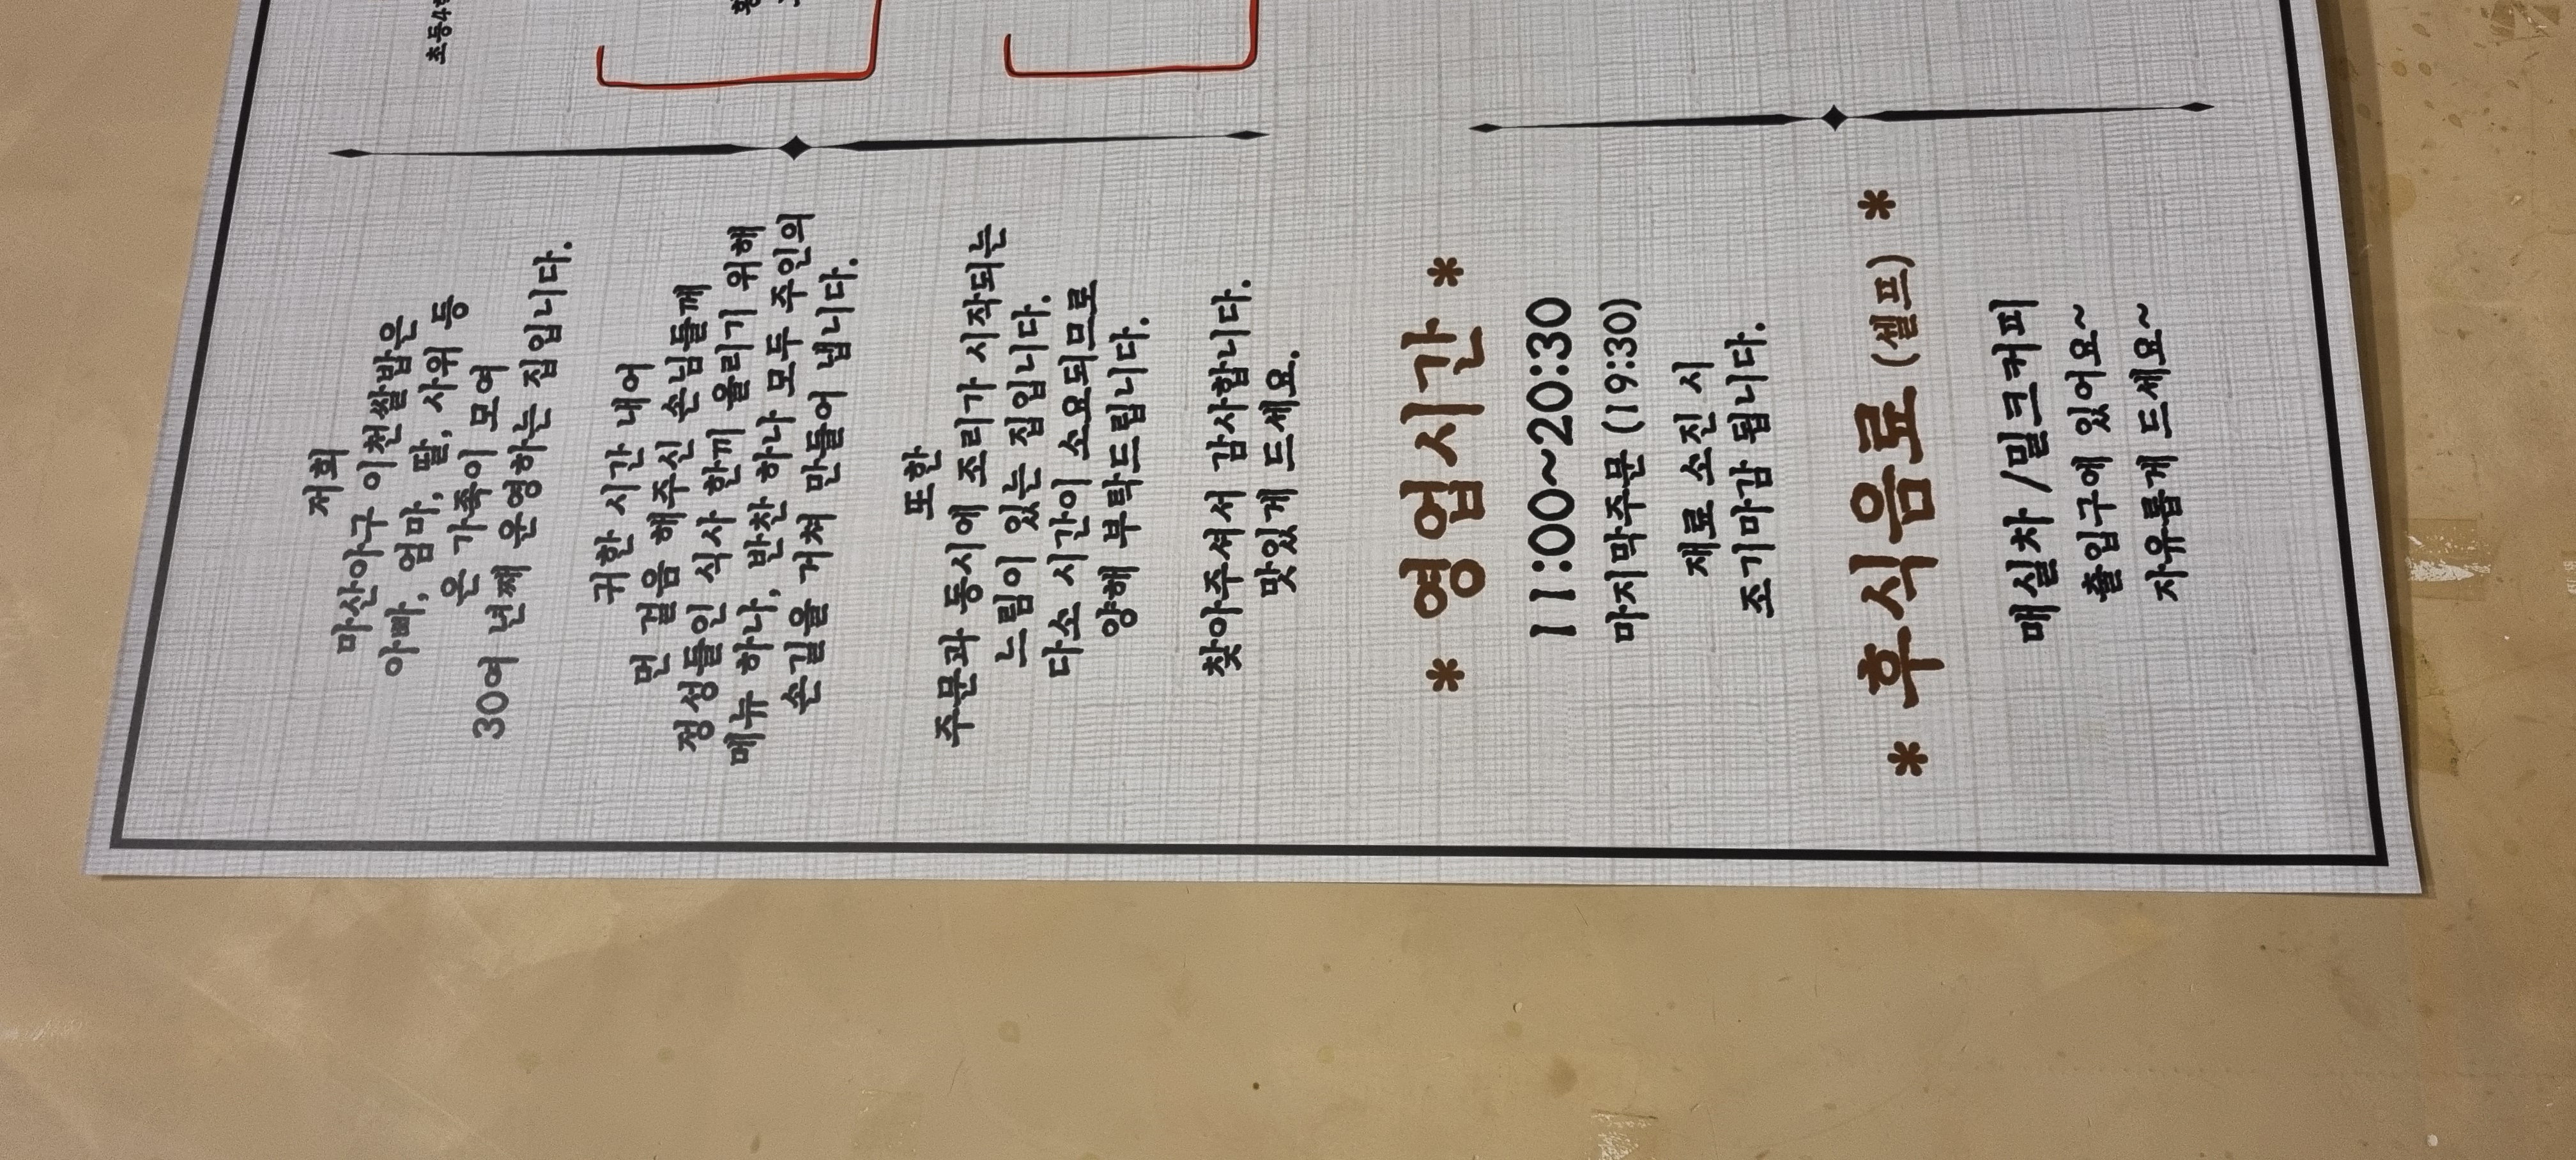 저희
마산아구 이천쌀밥은
아빠, 엄마, 딸, 사위 등
온 가족이 모여
30여 년째 운영하는 집입니다.
귀한 시간 내어
먼 걸음 해주신 손님들께
정성들인 식사 한끼 올리기 위해
메뉴 하나, 반찬 하나 모두 주인의
손길을 거쳐 만들어 냅니다.
또한
주문과 동시에 조리가 시작되는
느림이 있는 집입니다.
다소 시간이 소요되므로
양해 부탁드립니다.
찾아주셔서 감사합니다.
맛있게 드세요.
* 영업시간 *
11:00~20:30
마지막주문 (19:30)
재료 소진 시
조기마감 됩니다.
* 후식음료 (셀프) *
매실차 /밀크커피
출입구에 있어요~
자유롭게 드세요~